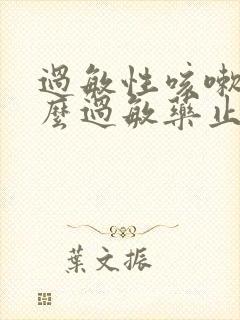 過敏性咳嗽
麼過敏藥止
葉文振